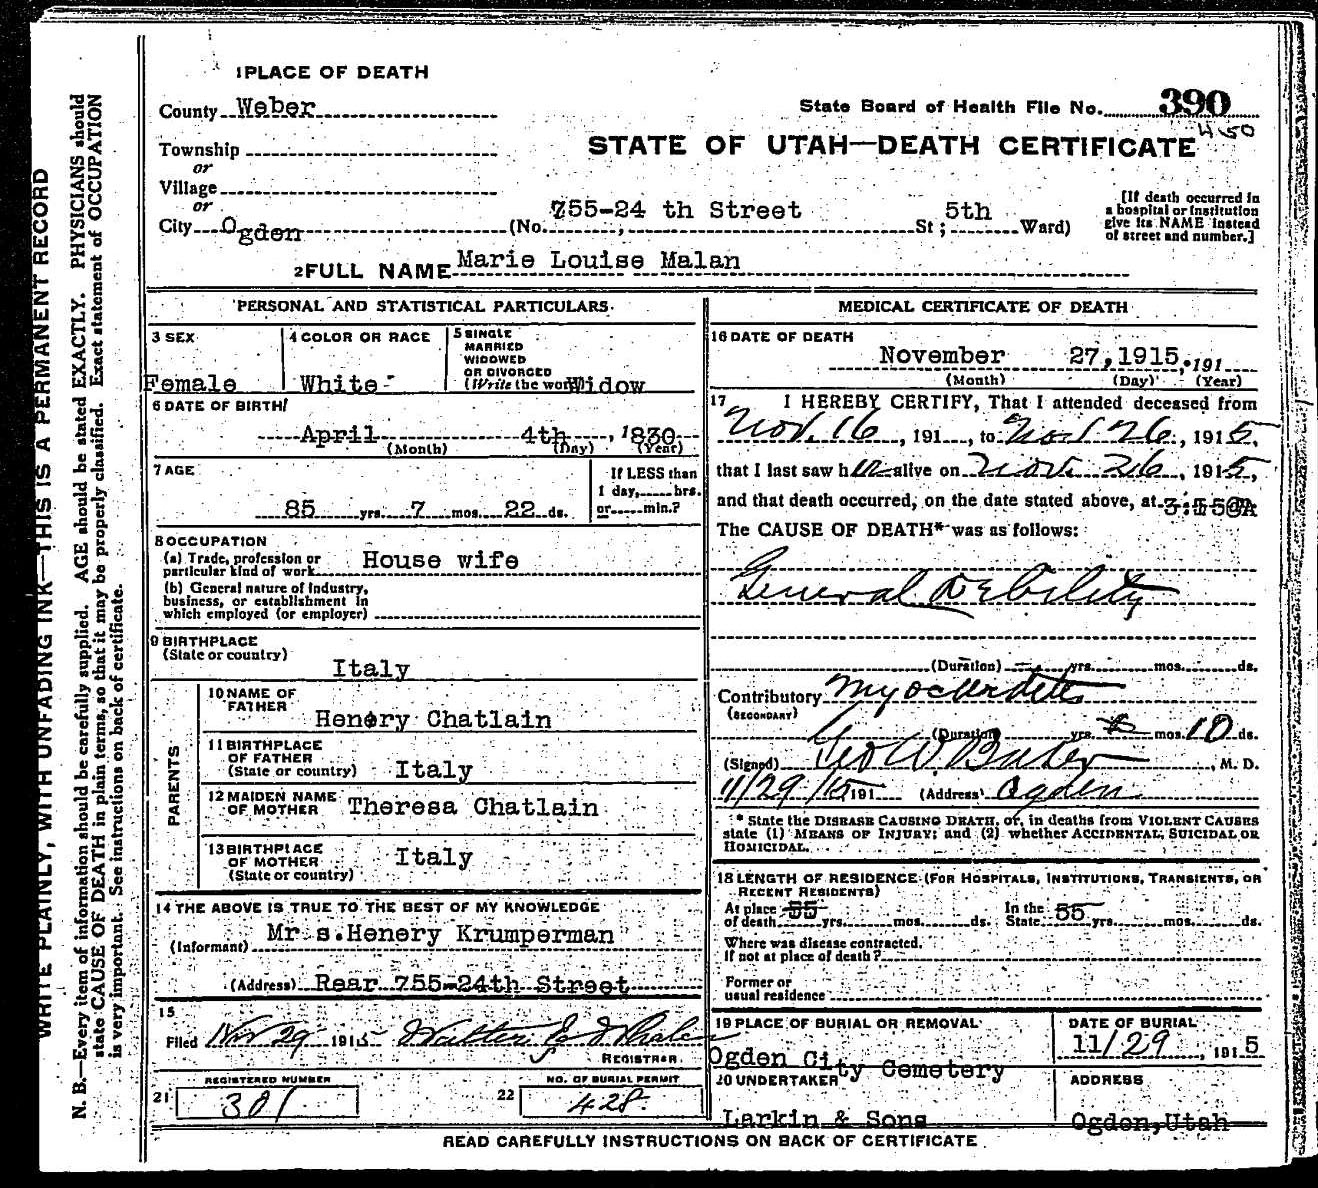 1 PLACE OF DEATH
County Weber
State Board of Health File No. 390
450
Township
or
Village
or
City Ogden
STATE OF UTAH—DEATH CERTIFICATE
(No. 755-24 th Street St; 5th Ward)
[If death occurred in
a hospital or institution
give its NAME instead
of street and number.]
2 FULL NAME Marie Louise Malan
PERSONAL AND STATISTICAL PARTICULARS
3 SEX
Female
4 COLOR OR RACE
White
5 SINGLE
MARRIED
WIDOWED
OR DIVORCED
(Write the word) Widow
6 DATE OF BIRTH
April 4th, 1830
(Month) (Day) (Year)
7 AGE
85 yrs. 7 mos. 22 ds.
If LESS than
1 day, hrs.
or min.?
8 OCCUPATION
(a) Trade, profession or
particular kind of work House wife
(b) General nature of Industry,
business, or establishment in
which employed (or employer)
9 BIRTHPLACE
(State or country)
Italy
PARENTS
10 NAME OF
FATHER
Henery Chatlain
11 BIRTHPLACE
OF FATHER
(State or country) Italy
12 MAIDEN NAME
OF MOTHER Theresa Chatlain
13 BIRTHPLACE
OF MOTHER
(State or country) Italy
14 THE ABOVE IS TRUE TO THE BEST OF MY KNOWLEDGE
(Informant) Mr s.Henery Krumperman
(Address) Rear 755-24th Street
15
Filed Nov 29 1915 Walter E
REGISTRAR
REGISTERED NUMBER
21 301
NO. OF BURIAL PERMIT
22 428
MEDICAL CERTIFICATE OF DEATH
16 DATE OF DEATH
November 27,1915, 191
(Month) (Day) (Year)
17 I HEREBY CERTIFY, That I attended deceased from
Nov. 16, 191 , to Nov 26, 1915,
that I last saw her alive on Nov. 26, 1915,
and that death occurred, on the date stated above, at
The CAUSE OF DEATH* was as follows:
General Debility
(Duration) yrs. mos. ds.
Contributory Myocarditis
(SECONDARY)
(Duration) yrs. mos. 10 ds.
(Signed) Geo W. Baker, M. D.
11/29/15, 191 (Address) Ogden
* State the DISEASE CAUSING DEATH, or, in deaths from VIOLENT CAUSES
state (1) MEANS OF INJURY; and (2) whether ACCIDENTAL, SUICIDAL OR
HOMICIDAL.
18 LENGTH OF RESIDENCE (FOR HOSPITALS, INSTITUTIONS, TRANSIENTS, OR
RECENT RESIDENTS)
At place
of death 55 yrs. mos. ds.
In the
State 55 yrs. mos. ds.
Where was disease contracted.
If not at place of death?
Former or
usual residence
19 PLACE OF BURIAL OR REMOVAL
Ogden City Cemetery
DATE OF BURIAL
11/29, 1915
20 UNDERTAKER
Larkin & Sons
ADDRESS
Ogden,Utah
READ CAREFULLY INSTRUCTIONS ON BACK OF CERTIFICATE
WRITE PLAINLY, WITH UNFADING INK—THIS IS A PERMANENT RECORD
N. B.—Every item of information should be carefully supplied. AGE should be stated EXACTLY. PHYSICIANS should
state CAUSE OF DEATH in plain terms, so that it may be properly classified. Exact statement of OCCUPATION
is very important. See instructions on back of certificate.